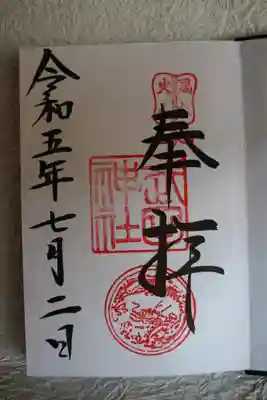 奉拝
神社
令和五年七月二日